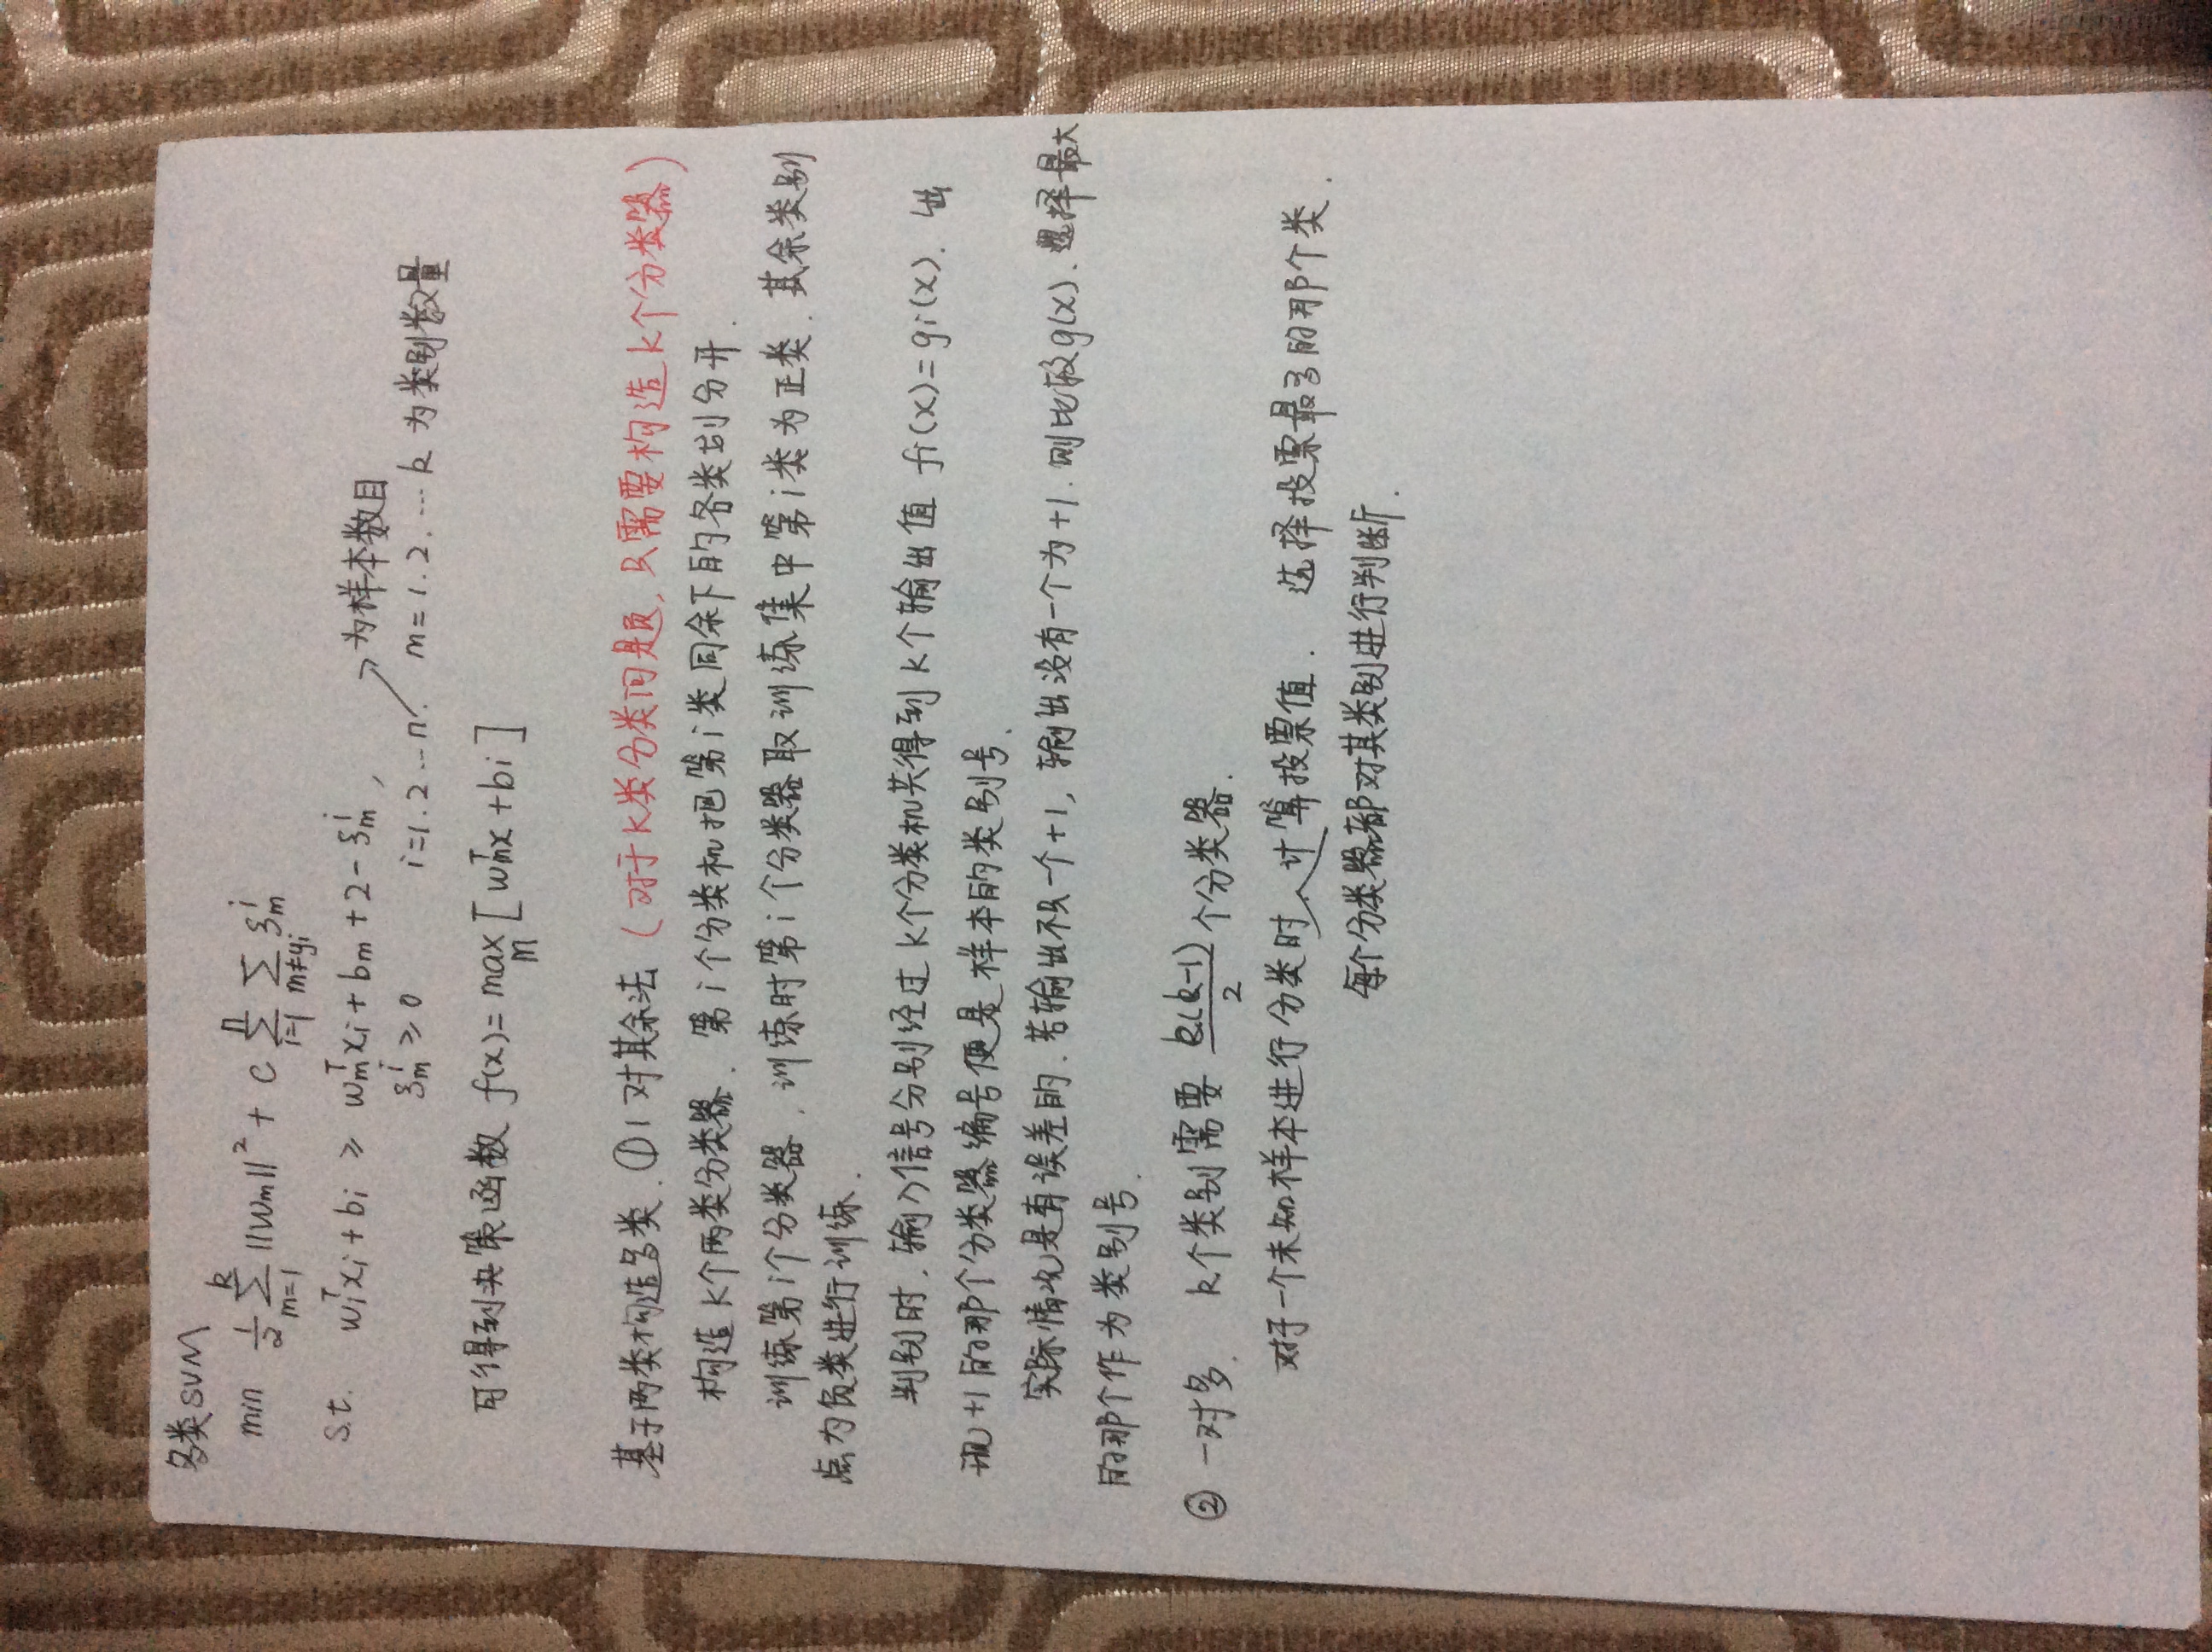 多类SVM
min 1/2 ∑_{m=1}^{k} ||w_m||² + C ∑_{i=1}^{n} ∑_{m≠y_i} ξ_m^i
s.t. w_i^T x_i + b_i ≥ w_m^T x_i + b_m + 2 - ξ_m^i,
ξ_m^i ≥ 0 i=1.2...n. → 为样本数目
m=1.2.…k 为类别数量
可得到决策函数 f(x)= max_m [w_m^T x + b_i]
基于两类构造多类. ①1对其余法 (对于k类分类问题, 只需要构造k个分类器)
构造k个两类分类器. 第i个分类机把第i类同余下的各类划分开.
训练第i个分类器. 训练时第i个分类器取训练集中第i类为正类. 其余类别
点为负类进行训练.
判别时. 输入信号分别经过k个分类机共得到k个输出值 fi(x)=gi(x). 出
现+1的那个分类器编号便是样本的类别号.
实际情况是有误差的. 若输出不只一个+1, 输出没有一个为+1. 则比较g(x). 选择最大
的那个作为类别号.
② 一对多. k个类别需要 k(k-1)/2 个分类器.
对于一个未知样本进行分类时 计算投票值. 选择投票最多的那个类.
每个分类器都对其类别进行判断.